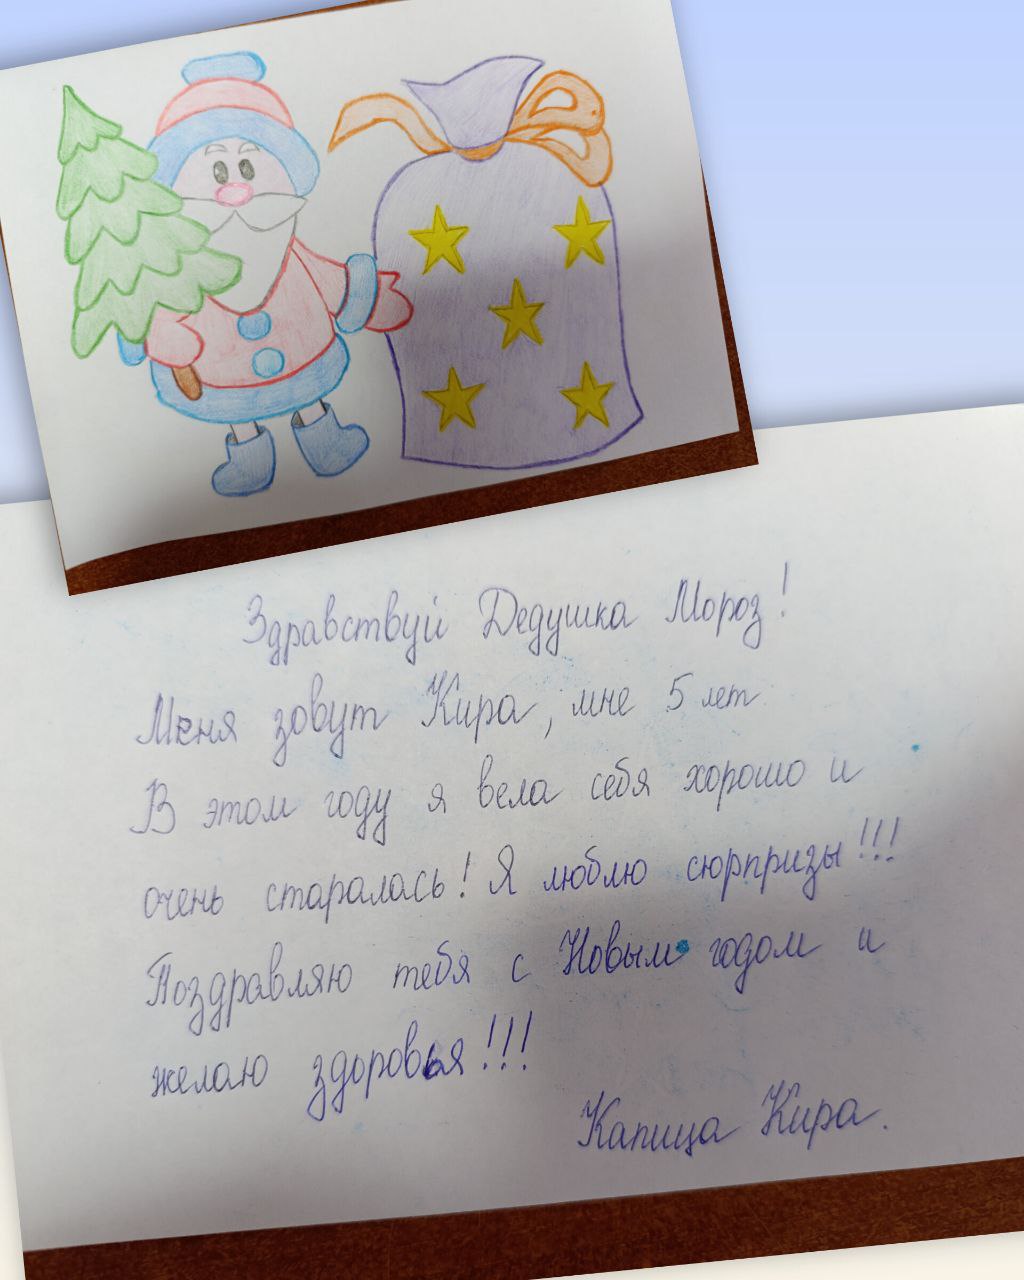 Здравствуй Дедушка Мороз!
Меня зовут Кира, мне 5 лет
В этом году я вела себя хорошо и
очень старалась! Я люблю сюрпризы!!!
Поздравляю тебя с Новым годом и
желаю здоровья!!!
Капица Кира.